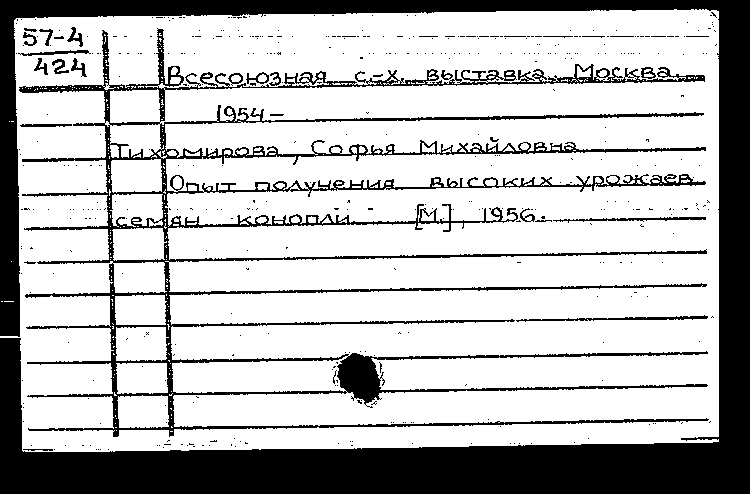 57-4
424
Всесоюзная с.-х. выставка. Москва.
1954-
Тихомирова, Софья Михайловна
Опыт получения высоких урожаев
семян конопли. [М.], 1956.